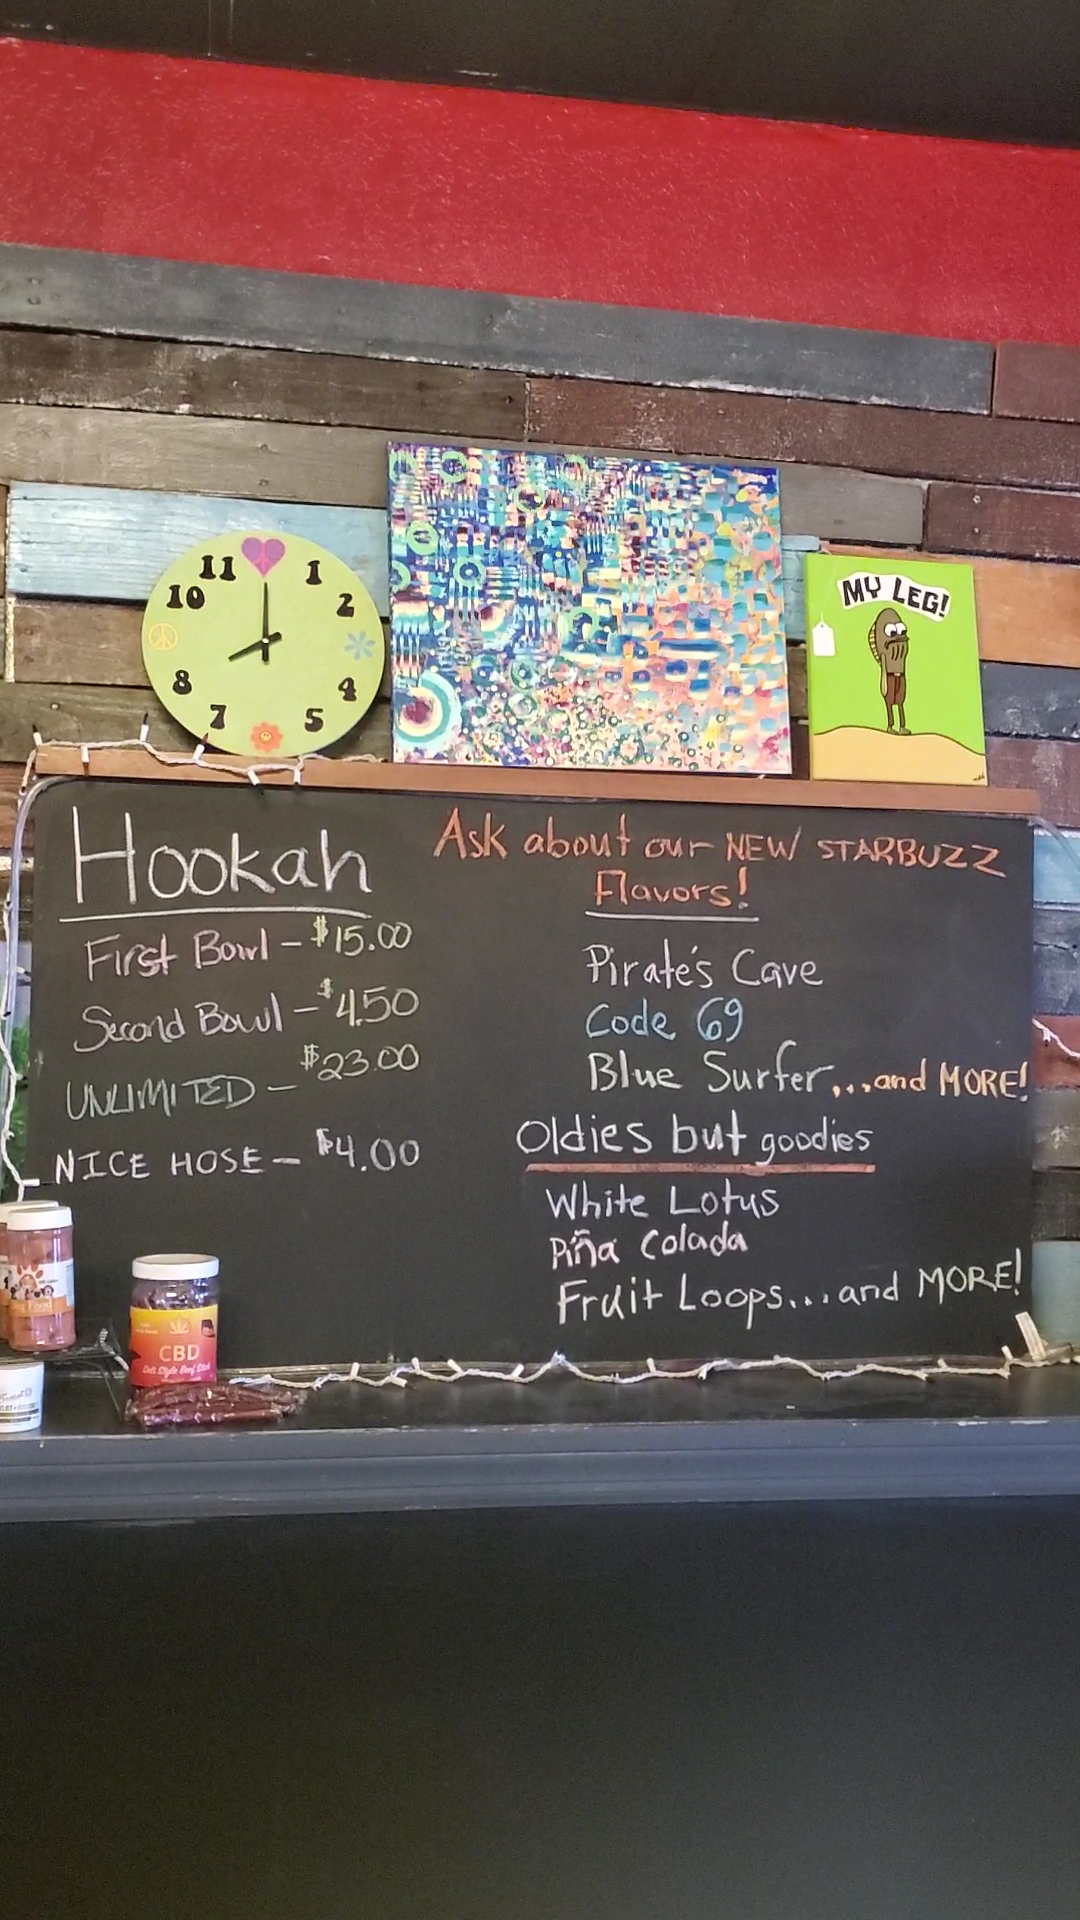 11 1
10 2
8 4
7 5
MY LEG!
Hookah
First Bowl - $15.00
Second Bowl - $4.50
UNLIMITED - $23.00
NICE HOSE - $4.00
Ask about our NEW STARBUZZ
Flavors!
Pirate's Cave
Code 69
Blue Surfer...and MORE!
Oldies but goodies
White Lotus
Piña Colada
Fruit Loops...and MORE!
CBD
Deli Style Beef Stick